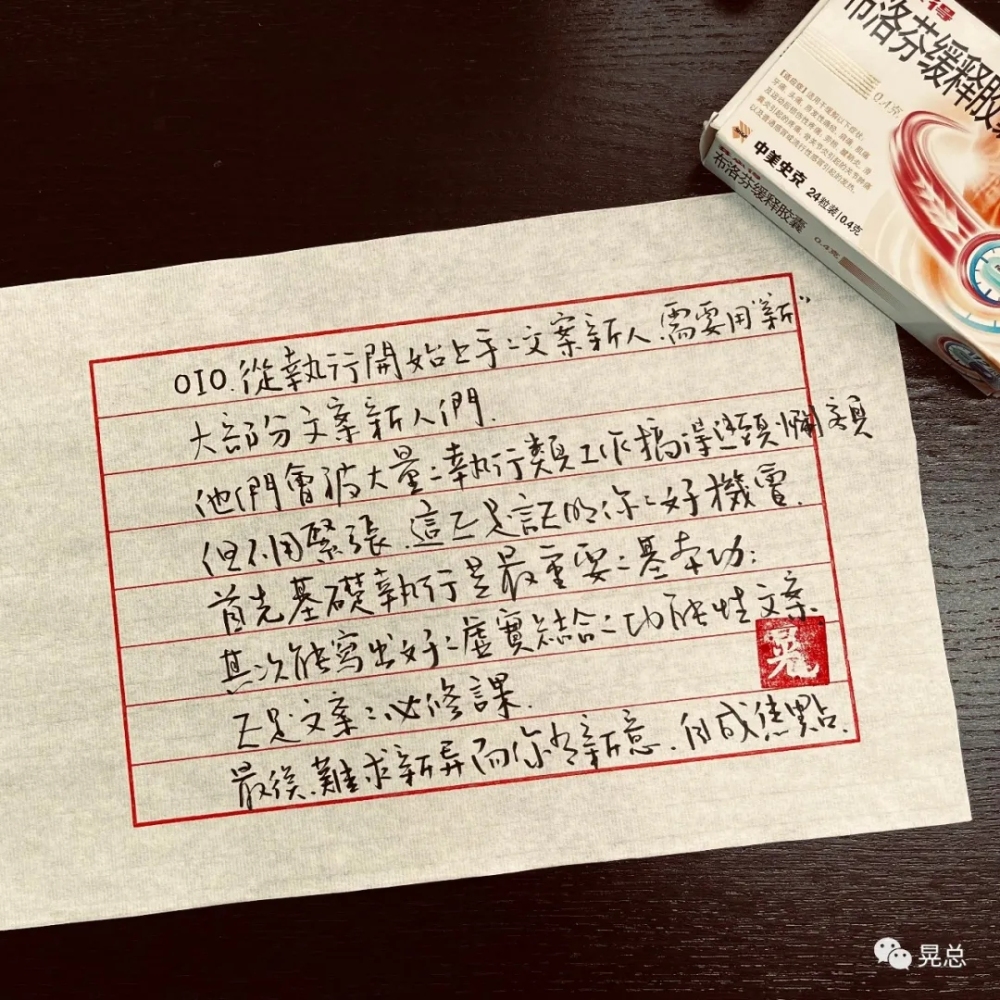 010.從執行開始上手:文案新人.需要用"新"
大部分文案新人們.
他們會被大量之執行類工作搞得焦頭爛額
但不用緊張.這正是証明你之好機會.
首先基礎執行是最重要之基本功;
其次能寫出好之虛實結合之功能性文案
正是文案之必修課.
最後.難求新異而你有新意.自成焦點.
晃
得
布洛芬缓释胶囊
0.4克
中美史克 24粒装|0.4克
布洛芬缓释胶囊
0.4克
晃总